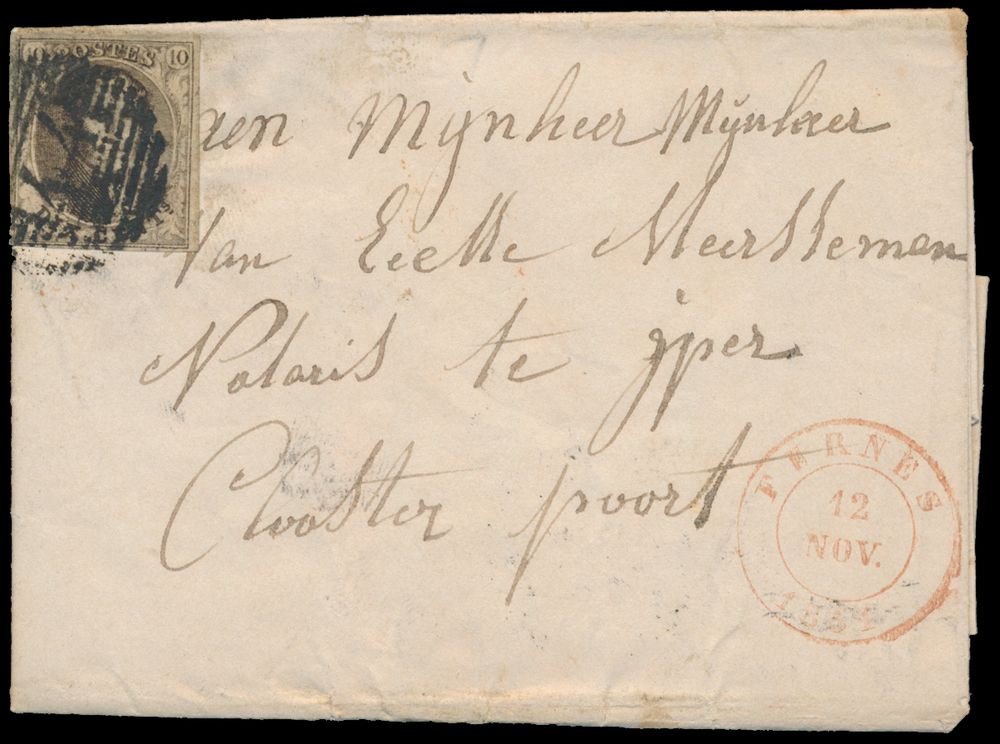 10 POSTES 10
aen Mijnheer Mijnheer
Van Eecke Meersseman
Notaris te jper
Clooster poort
FURNES
12
NOV.